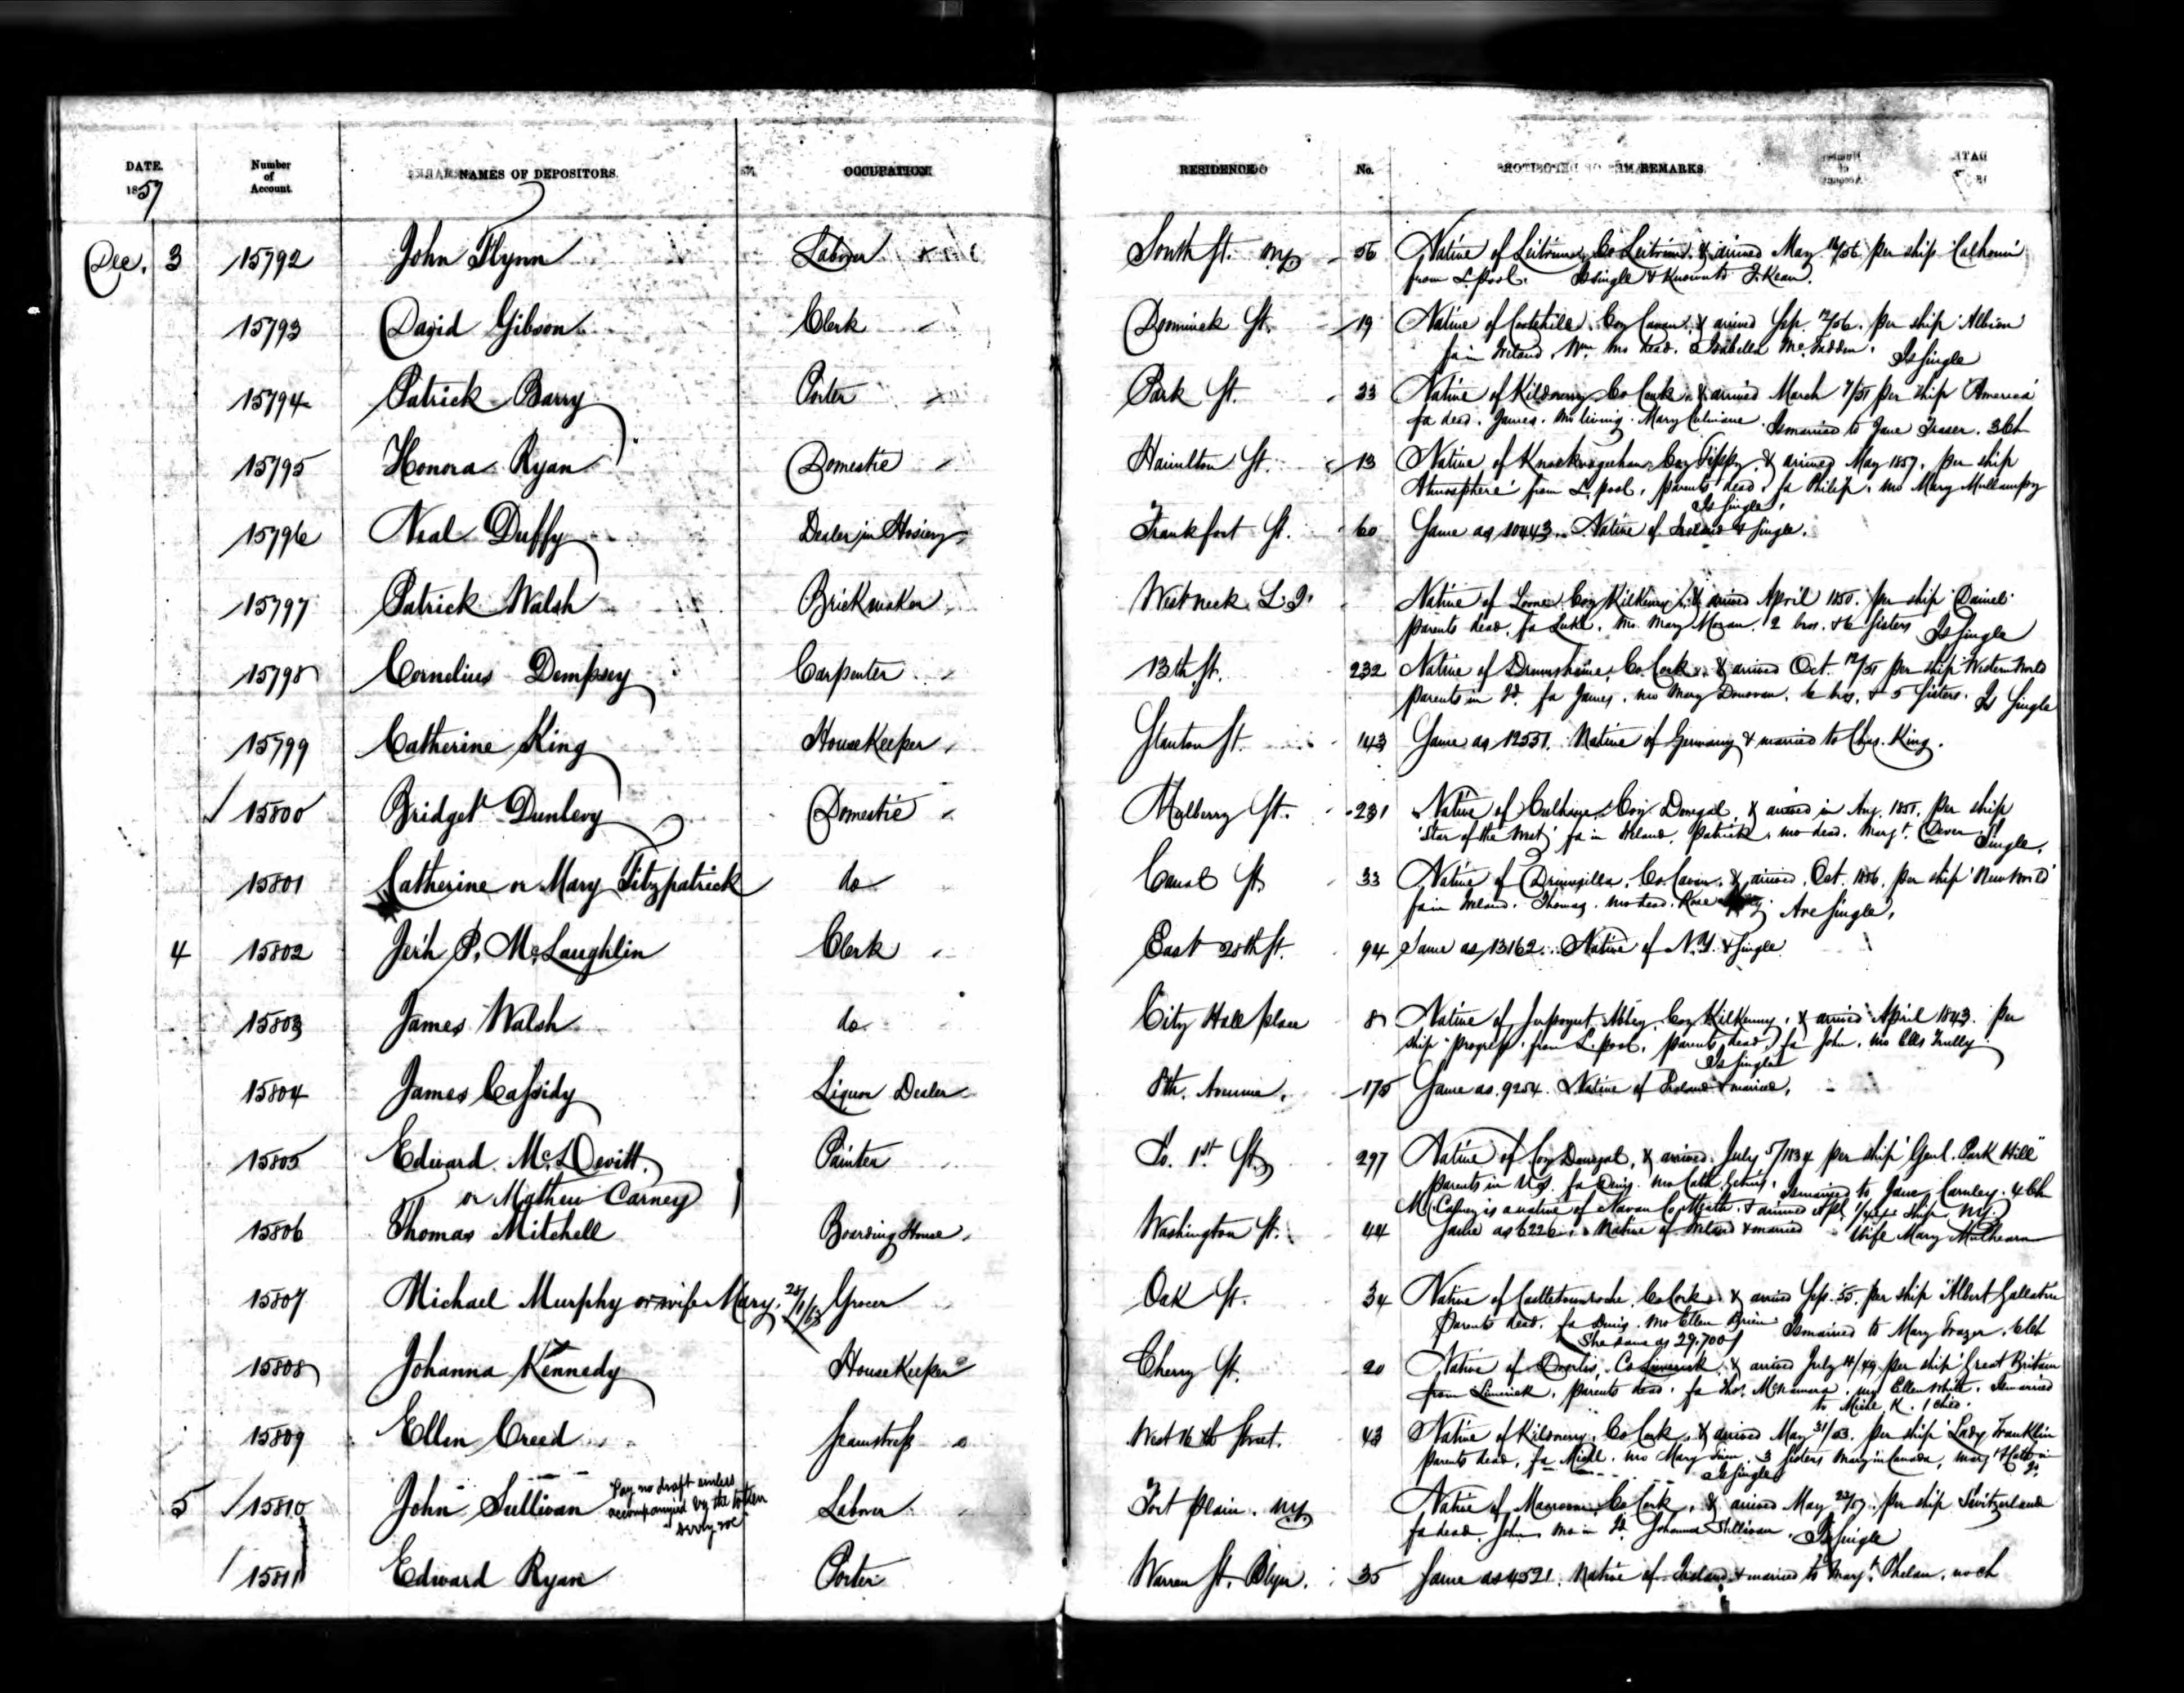 DATE. Number of Account. NAMES OF DEPOSITORS. OCCUPATION RESIDENCE No. REMARKS.
1857
Dec. 3 15792 John Flynn Laborer South St. NY 56 Native of Leitrim Co Leitrim & arrived May 16/56 per ship Calhoun
from L.pool. Is single & Known to J. Kean.
15793 David Gibson Clerk Dominick St. 19 Native of Cootehill Coy Cavan & arrived Sep. 12/56. per ship Albion
fa in Ireland, Wm mo dead. Isabella McFadden. Is single
15794 Patrick Barry Porter Park St. 33 Native of Kildorrery Co Cork & arrived March 7/51 per ship America
fa dead. James. mo living. Mary Culinane Is married to Jane Fraser. 3 Ch
15795 Honora Ryan Domestic Hamilton St. 13 Native of Coy Tippy. & arrived May 1857. per ship
Atmosphere from L.pool, parents dead, fa Philip, mo Mary
Is single,
15796 Neal Duffy Dealer in Hosiery Frankfort St. 60 Same as 10443. Native of Ireland & single.
15797 Patrick Walsh Brickmaker West neck L.I. Native of Coy Kilkenny & arrived April 1850. per ship Daniel
parents dead. fa Luke. mo Mary Moran. 2 bros. & 6 sisters Is single
15798 Cornelius Dempsey Carpenter 13th St. 232 Native of Co. Cork & arrived Oct. 12/51 per ship Western World
parents in Id. fa James, mo Mary Donovan. 6 bros. & 5 sisters. Is single
15799 Catherine King HouseKeeper Stanton St. 143 Same as 12551. Native of Germany & married to Chas. King.
15800 Bridget Dunlevy Domestic Mulberry St. 231 Native of Coy. Donegal, & arrived in Aug. 1851, per ship
'Star of the West' fa in Ireland, Patrick, mo dead. Margt. Dever Single,
15801 Catherine or Mary Fitzpatrick do Canal St. 33 Native of Co. Cavan, & arrived, Oct. 1856, per ship 'New World'
fa in Ireland. Thomas. mo dead. Rose Are single,
4 15802 Jerh P. McLaughlin Clerk East 28th St. 94 Same as 13162. Native of N.Y. & single
15803 James Walsh do City Hall place 8 Native of Jerpoynt Abbey, Coy Kilkenny, & arrived April 1843. per
ship "Progress" from L.pool, parents dead, fa John, mo Ellis
Is single
15804 James Cassidy Liquor Dealer 8th. Avenue. 175 Same as 9254. Native of Ireland & married,
15805 Edward McDevitt. Painter So. 1st. St. 297 Native of Coy Donegal, & arrived July 5/1834 per ship Genl. Park Hill"
or Mathew Carney parents in U.S. fa Denis. mo Cath. Is married to Jane Carnley. 4 Ch
M. Carney is a native of Navan Co Meath. & arrived Apl. ship NY.
15806 Thomas Mitchell Boarding House Washington St. 44 Same as 6226. Native of Ireland & married Wife Mary Mulhearn
15807 Michael Murphy or wife Mary. 28/1/63 Grocer Oak St. 34 Native of Castletownroche. Co Cork & arrived Sep. 55, per ship "Albert Gallatin
Parents dead. fa Denis. mo Ellen Brien Is married to Mary Frazer. 6 Ch
She same as 29,700
15808 Johanna Kennedy HouseKeeper Cherry St. 20 Native of Co Limerick & arrived July 14/49 per ship Great Britain
from Limerick, parents dead. fa Thos. McNamara. mo Ellen White. Is married
to Michl K. 1 child.
15809 Ellen Creed Seamstress West 16th Street. 43 Native of Kildorrery. Co Cork, & arrived May 31/53. per ship Lady Franklin
parents dead, fa Michl. mo Mary 3 sisters Mary in Canada, Marg. & Cath in
Is single Id.
5 15810 John Sullivan Pay no draft unless accompanied by the written Laborer Fort Plain. NY. Native of Macroom Co Cork, & arrived May 23/57. per ship Switzerland
fa dead. John. mo in Id. Johanna Sullivan. Is single
15811 Edward Ryan Porter Warren St. Blyn. 35 Same as 4521. Native of Ireland & married to Margt. Phelan. no ch